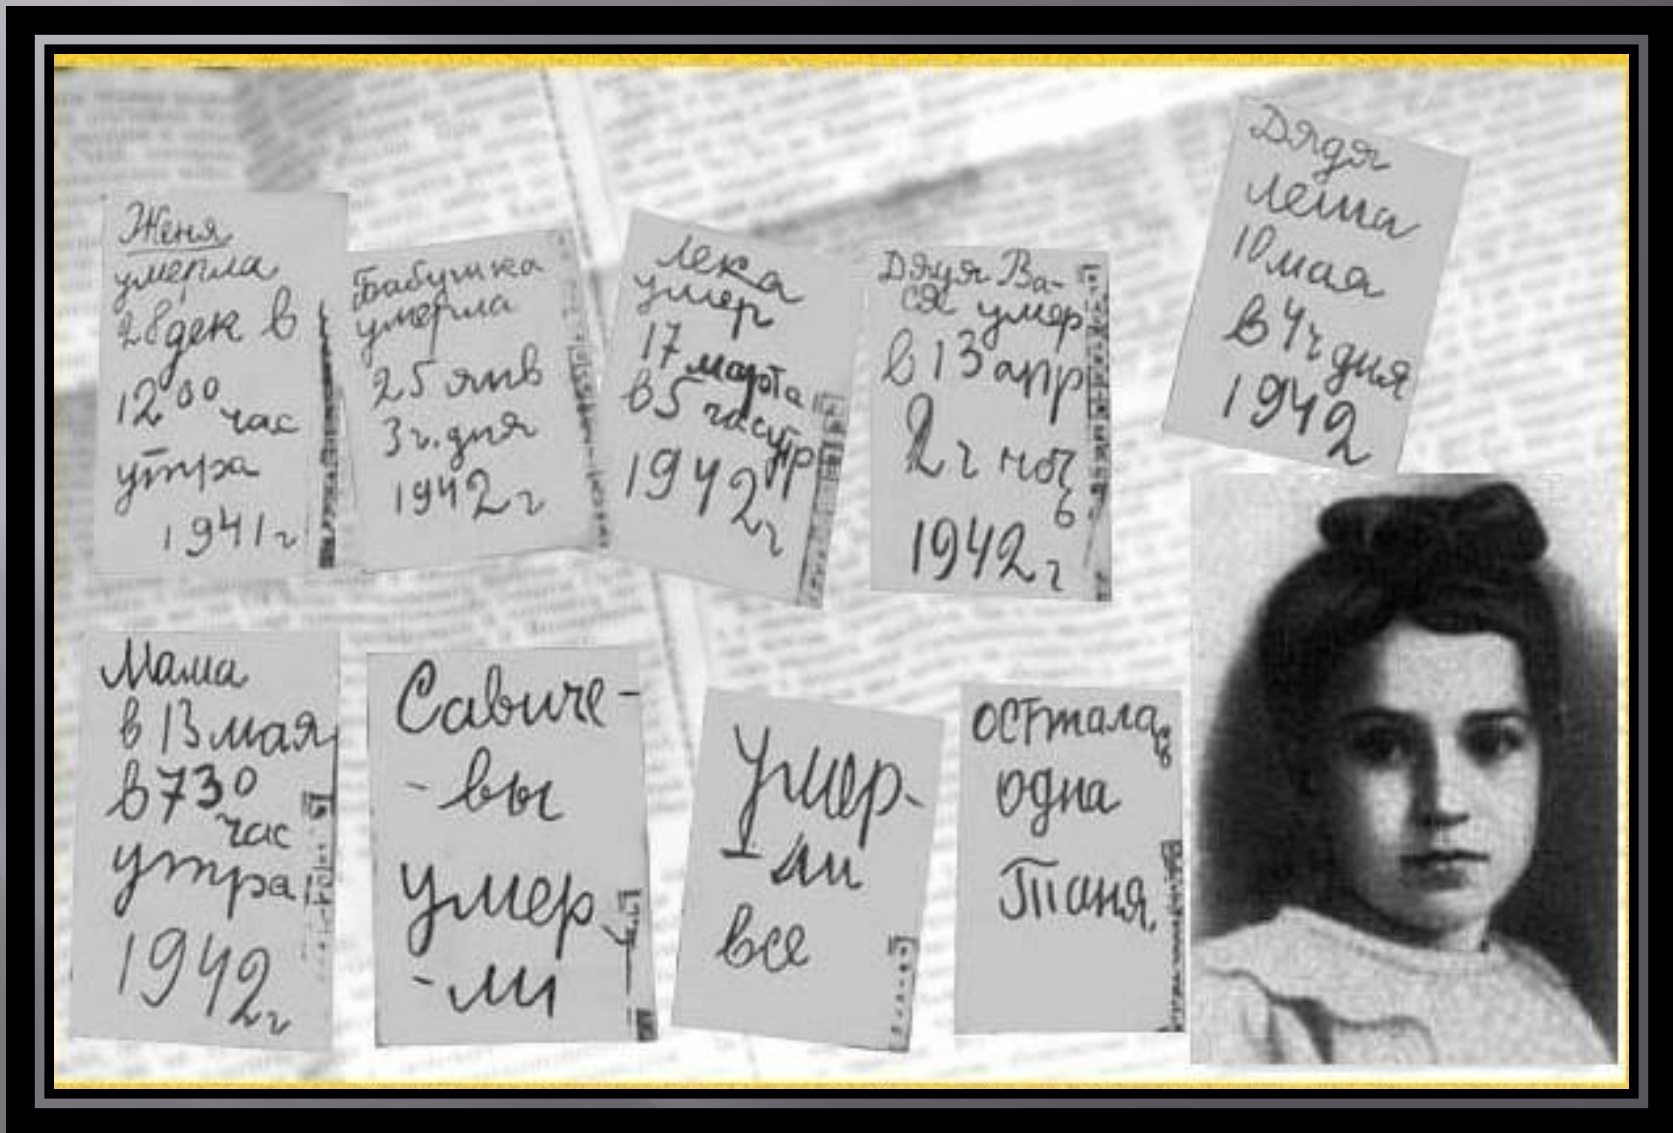 Женя
умерла
28 дек в
12 00 час
утра
1941 г
Бабушка
умерла
25 янв
3 ч. дня
1942 г
Лека
умер
17 марта
в 5 час утр
1942 г
Дядя Ва-
ся умер
в 13 апр
2 ч ноч
ь
1942 г
Дядя
Леша
10 мая
в 4 ч дня
1942
Мама
в 13 мая
в 7 30
час
утра
1942 г
Савиче-
-вы
умер
-ли
Умер-
-ли
все
осттала
сь
одна
Таня.